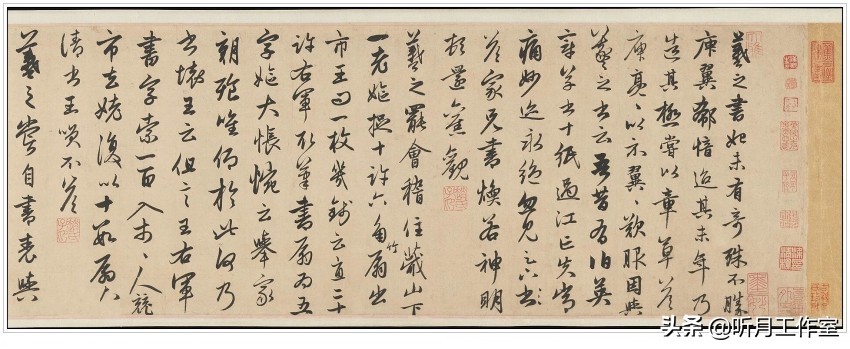 羲之書始未有奇殊不勝
庾翼郗愔迨其末年乃
造其極嘗以章草答
庾亮〻以示翼〻歎服因與
羲之書云吾昔有伯英
章草書十紙過江亡失常
痛妙迹永絕忽見足下書
答家兄書煥若神明
頓還舊觀
羲之罷會稽住蕺山下
一老嫗捉十許六角竹扇出
市王問一枚幾錢云直二十
許右軍取筆書扇為五
字嫗大悵惋云舉家
朝飧唯仰於此何乃
書壞王云但言王右軍
書字索一百入市〻人競
市去姥復以十數扇
請書王笑不答
羲之嘗自書表與
头条@听月工作室